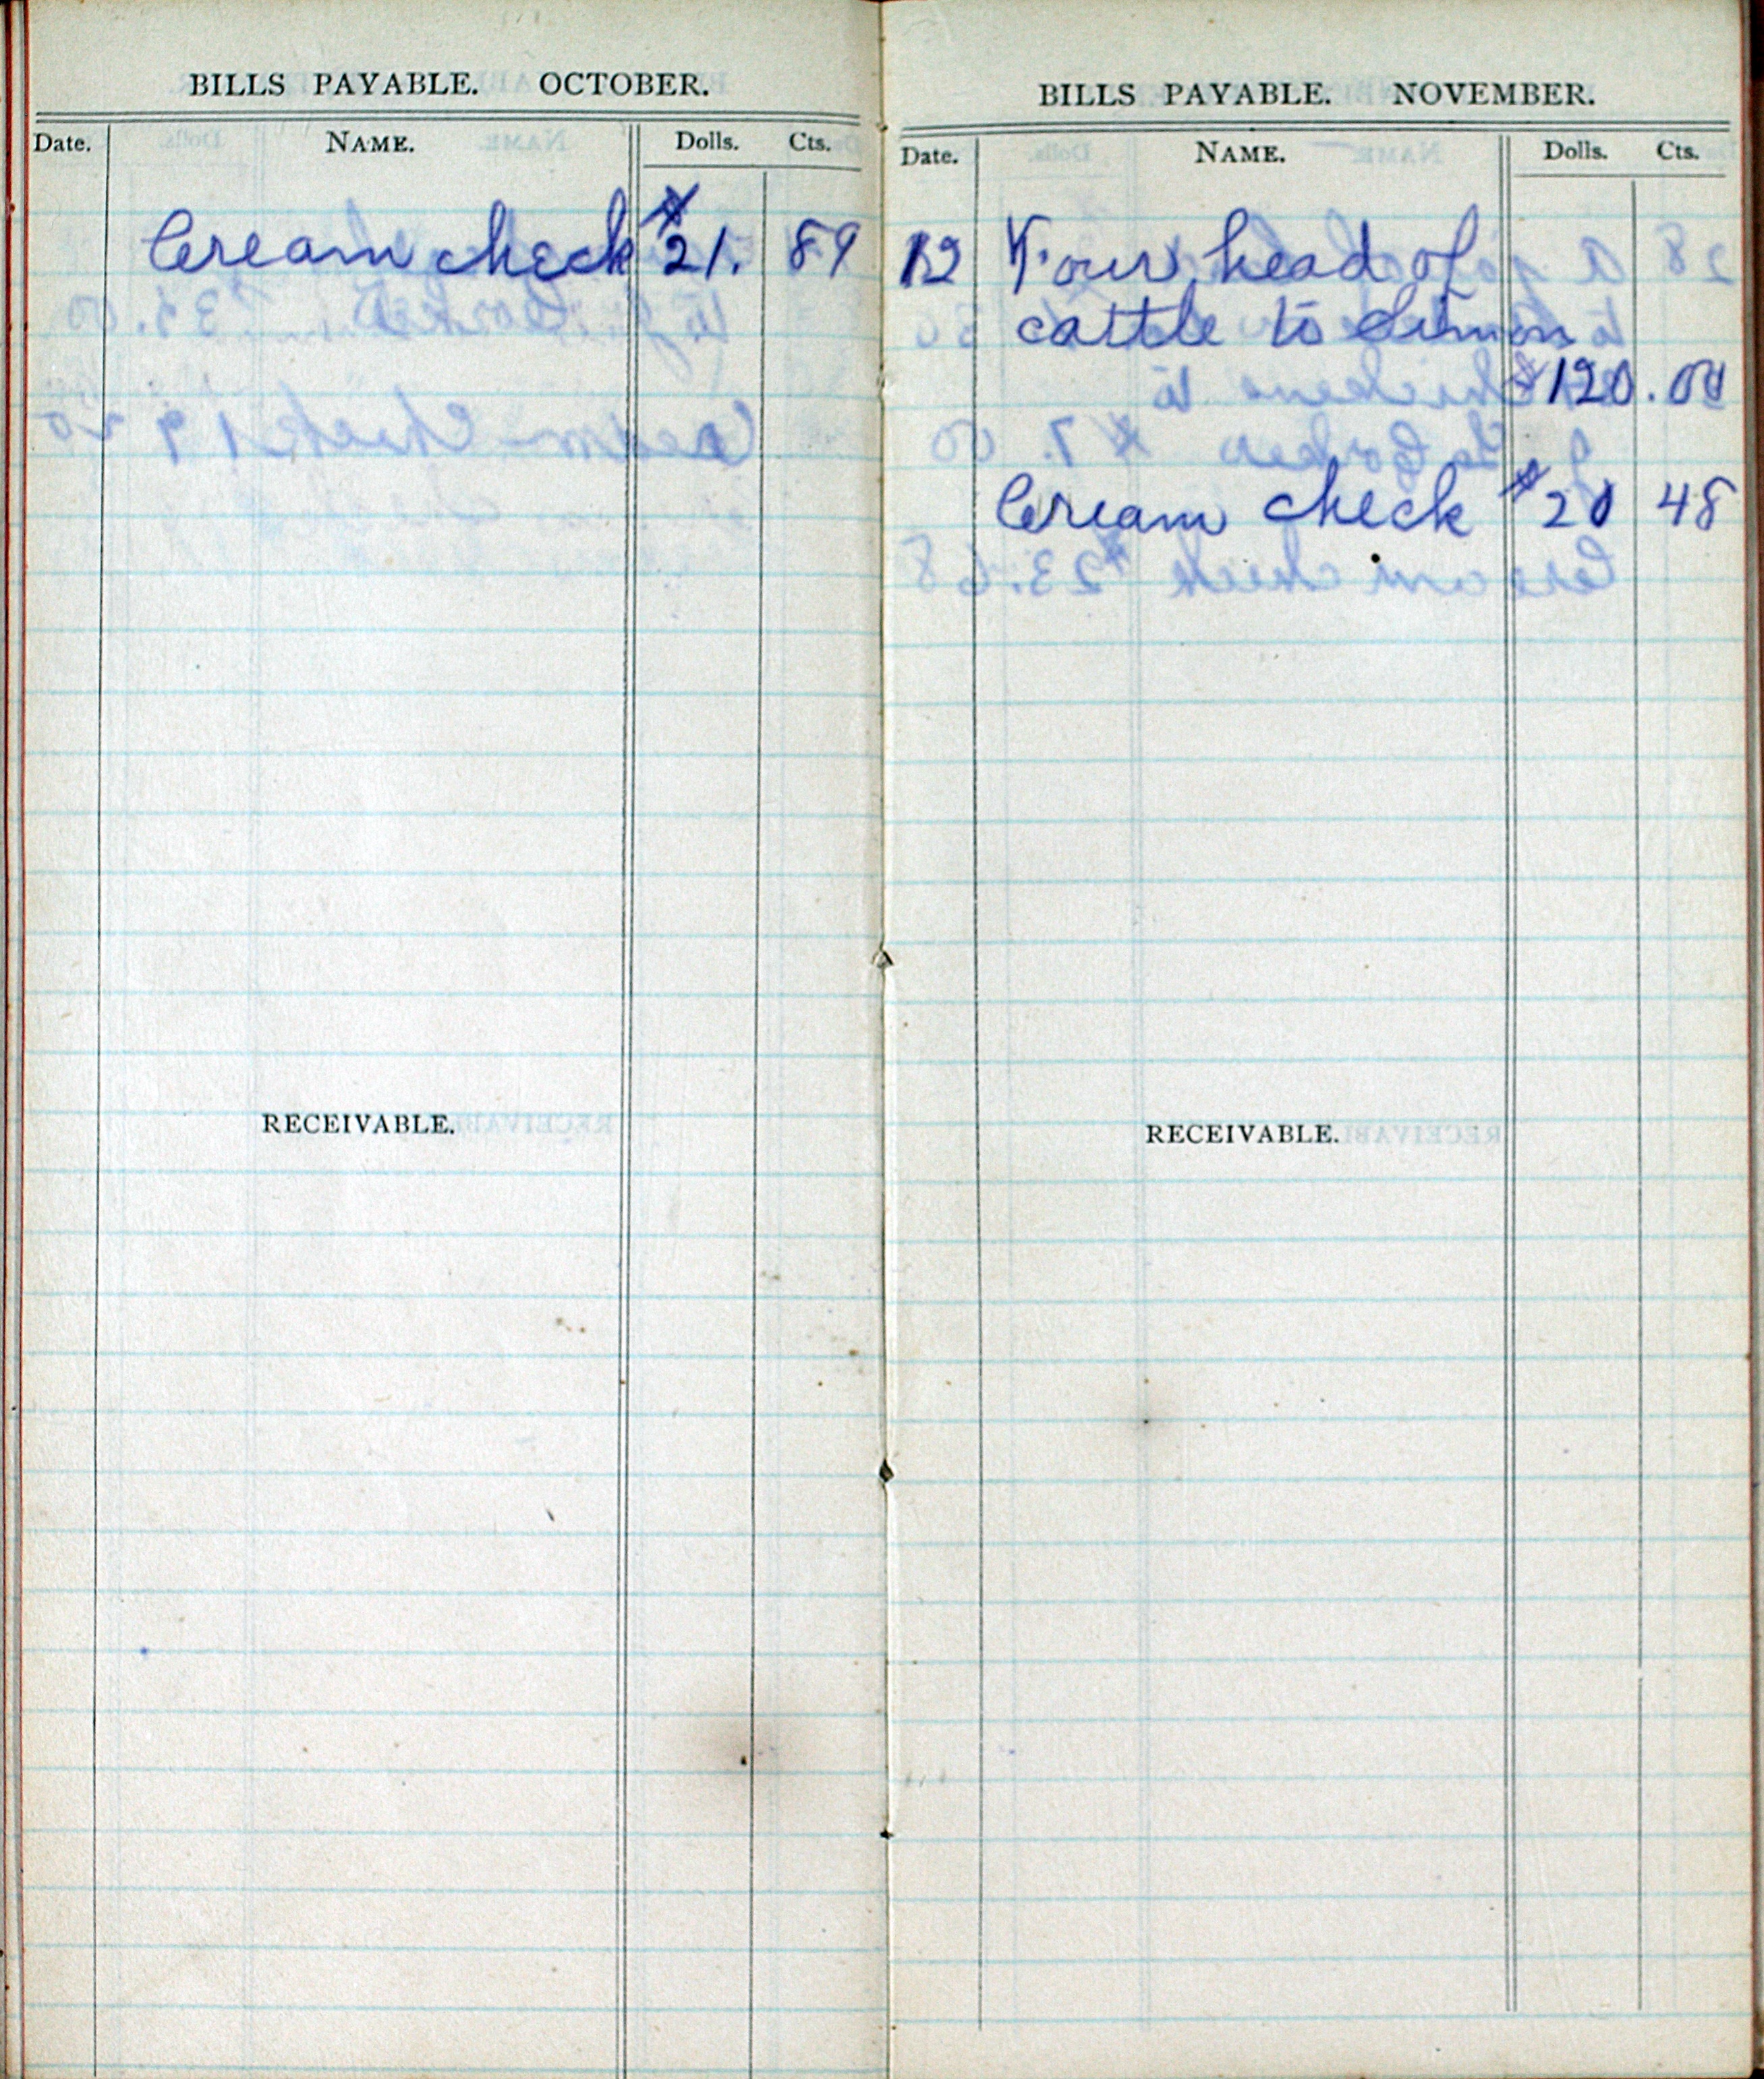 BILLS PAYABLE. OCTOBER.
Date. NAME. Dolls. Cts.
Cream check $21. 89
RECEIVABLE.
BILLS PAYABLE. NOVEMBER.
Date. NAME. Dolls. Cts.
12 Four head of
cattle to Simon
$120.00
Cream check $20 48
RECEIVABLE.